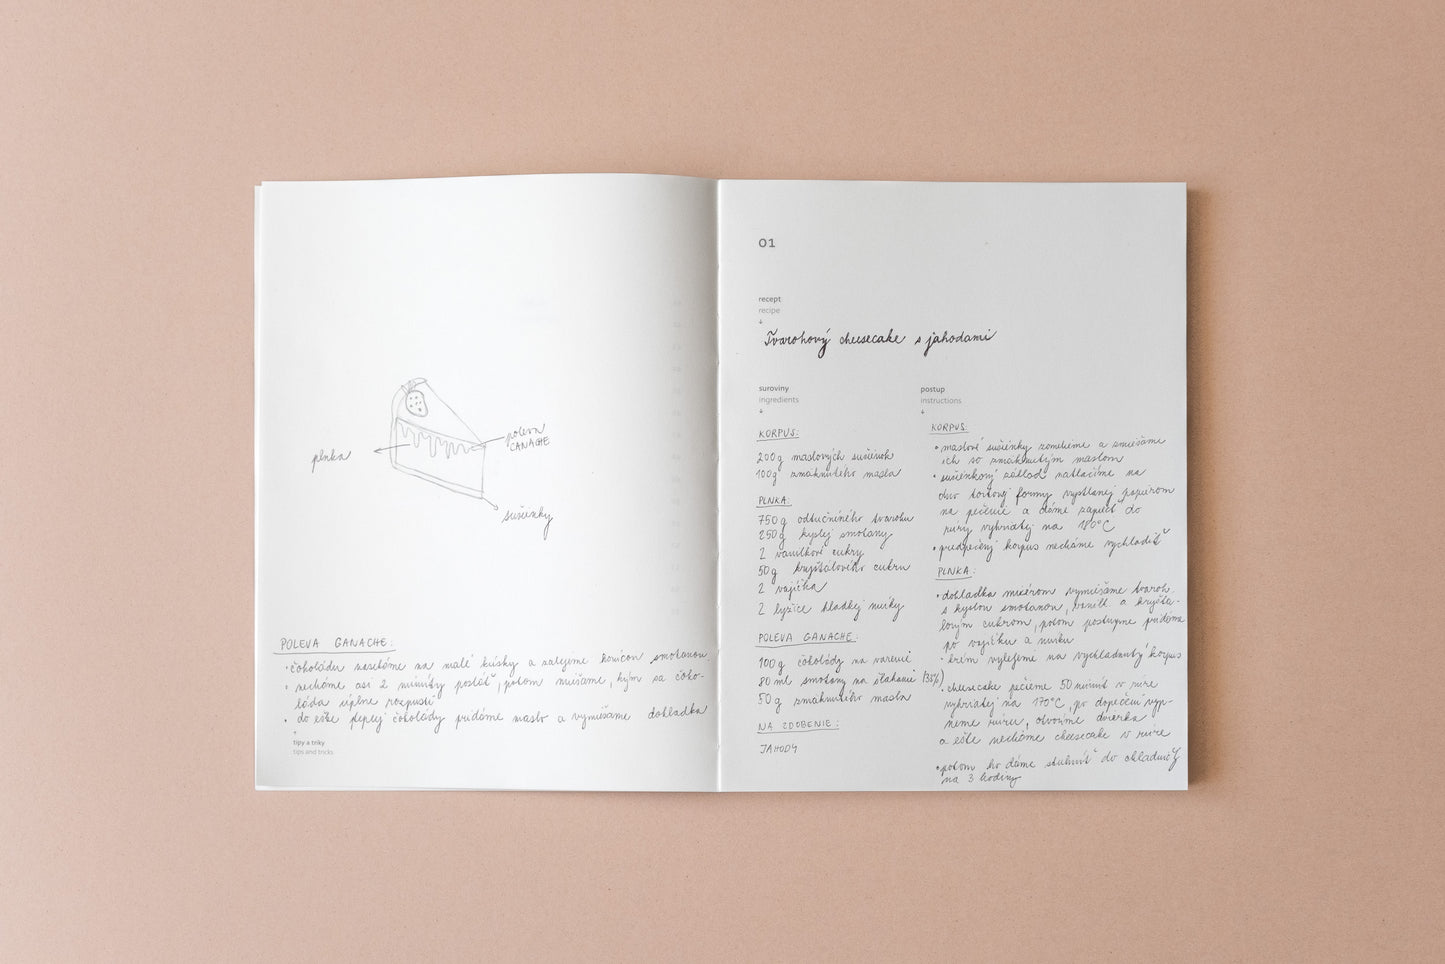 plnka
poleva
GANACHE
sušienky
POLEVA GANACHE:
• čokoládu nasekáme na malé kúsky a zalejeme horúcou smotanou
• necháme asi 2 minúty postáť, potom miešame, kým sa čoko-
láda úplne rozpustí
• do ešte teplej čokolády pridáme maslo a vymiešame dohladka
↑
tipy a triky
tips and tricks
01
recept
recipe
↓
Tvarohový cheesecake s jahodami
suroviny
ingredients
↓
KORPUS:
200g maslových sušienok
100g zmäknutého masla
PLNKA:
750g odtučneného tvarohu
250g kyslej smotany
2 vanilkové cukry
50g kryštálového cukru
2 vajíčka
2 lyžice hladkej múky
POLEVA GANACHE:
100g čokolády na varenie
80ml smotany na šľahanie (33%)
50g zmäknutého masla
NA ZDOBENIE:
JAHODY
postup
instructions
↓
KORPUS:
• maslové sušienky zomelieme a zmiešame
ich so zmäknutým maslom
• sušienkový základ natlačíme na
dno tortovej formy vystlanej papierom
na pečenie a dáme zapiecť do
rúry vyhriatej na 180°C
• predpečený korpus necháme vychladiť
PLNKA:
• dohladka mixérom vymiešame tvaroh
s kyslou smotanou, vanilk. a kryštá-
lovým cukrom, potom postupne pridáme
po vajíčku a múku
• krém vylejeme na vychladnutý korpus
• cheesecake pečieme 50 minút v rúre
vyhriatej na 170°C, po dopečení vyp-
neme rúru, otvoríme dvierka
a ešte necháme cheesecake v rúre
• potom ho dáme stuhnúť do chladničky
na 3 hodiny